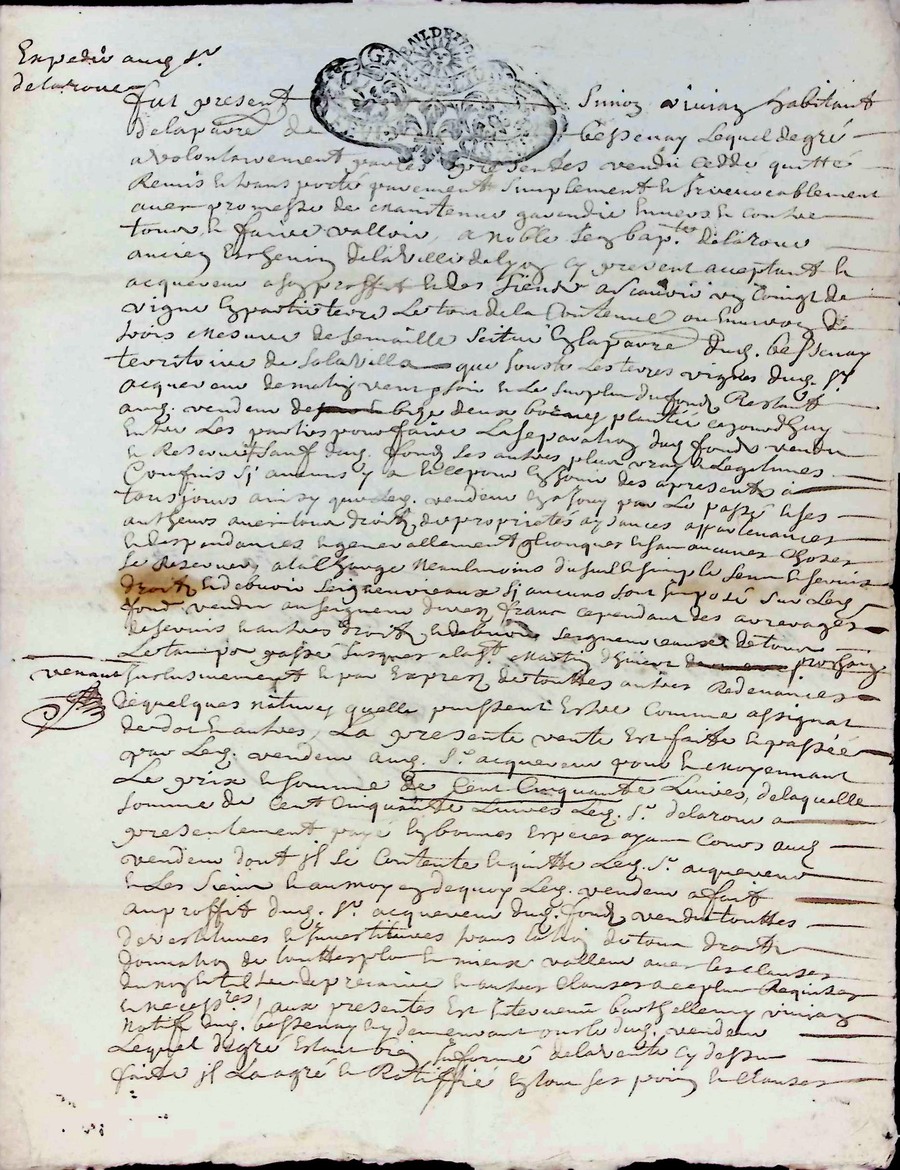 Expedié aud. Sr.
delaroue
fut present Simon vivian habitant
delaparre de bessenay Lequel degré
a volontairement par ces presentes vendu ceddé quitté
Remis et transporté purement simplement et Irrevocablement
avec promesse de maintenir garendir Envers et contre
tous et faire valloir, a noble Jean bapte. delaroue
ancien Eschevin delaville delyon cy present aceptant et
acquereur a son proffit et des siens ascavoir un coing de
vigne En partie terre Le tout de la Contenue ou Environ de
trois mesures de semaille scitué En laparre dud. bessenay
territoire de Salavilla que Jouste Les terres vignes dud. Sr.
acquereur dematin vent et soir et Le surplus du fond Restant
aud. vendeur de bize deux bornes plantées cejourdhuy
Entre Les parties pour faire La separation dud. fond vendu
et Reservé sauf dud. fond ses autres plus vrays et Legitimes
Confins si aucuns y a et ce pour En jouir des apresent et a
tousjours ainsy que led. vendeur En a jouy par Le passé et ses
autheurs avec tous droits de proprietés aysances appartenances
et despendances et generallement quelconques et sans aucunes choses
se Reserver, a la Charge neantmoins du seul et simple sens et servis
droits et debvoirs seigneuriaux si aucuns sont Imposé sur Led.
fond vendu au seigneur duquel franc cependant des arrerages
de servis et autres droits et debvoirs seigneuriaux de tout
Le temps passé Jusques a la st. Martin dhiver prochain
venant
Exclusivement et par Exprez de touttes autres Redevances
de quelques natures quelle puissent Estre comme assignat
de dot et autres, La presente vente Est faitte et passée
par Led. vendeur aud. Sr. acquereur pour et moyennant
Le prix et somme de Cent Cinquante Livres, delaquelle
somme de Cent Cinquante Livres Led. Sr. delaroue a
presentement payé En bonnes Especes ayant Cours aud.
vendeur dont jl se Contente et quitte Led. Sr. acquereur
et Les siens et au moyen dequoy Led. vendeur a fait
au proffit dud. Sr. acquereur dud. fond vendu touttes
devestitures et Jnvestitures translation de tous droits
donnation de touttes plus et mieux valleur avec les clauses
de precaire et autres clauses a ce plus Requises
et necessres, aux presentes Est Intervenu barthellemy vivian
natif dud. bessenay y demeurant dud. vendeur
Lequel degré Estant bien Jnformé delavente cy dessus
faite jl La agréé et Ratiffié En tous ses points et Clauses